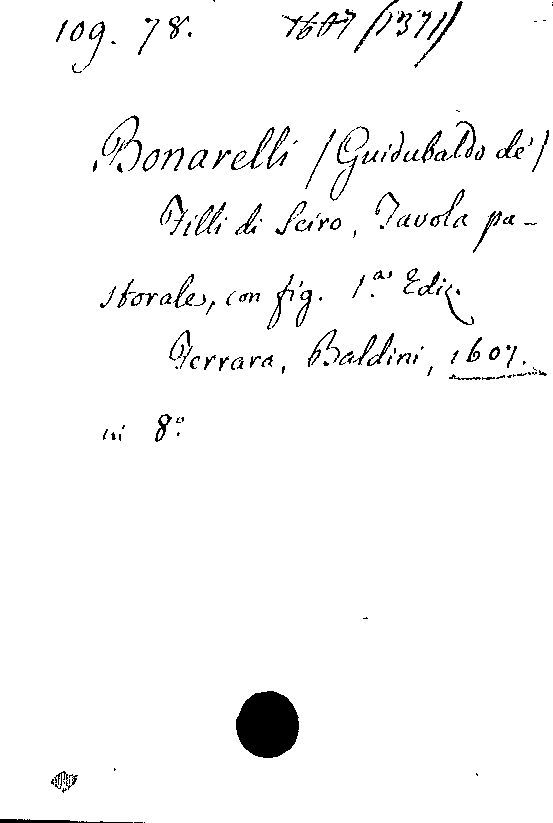 109. 78. 1607 (1371)
Bonarelli (Guidubaldo de')
Filli di Sciro, Favola pa-
storale, con fig. 1.a Ediz.
Ferrara, Baldini, 1607.
in 8º